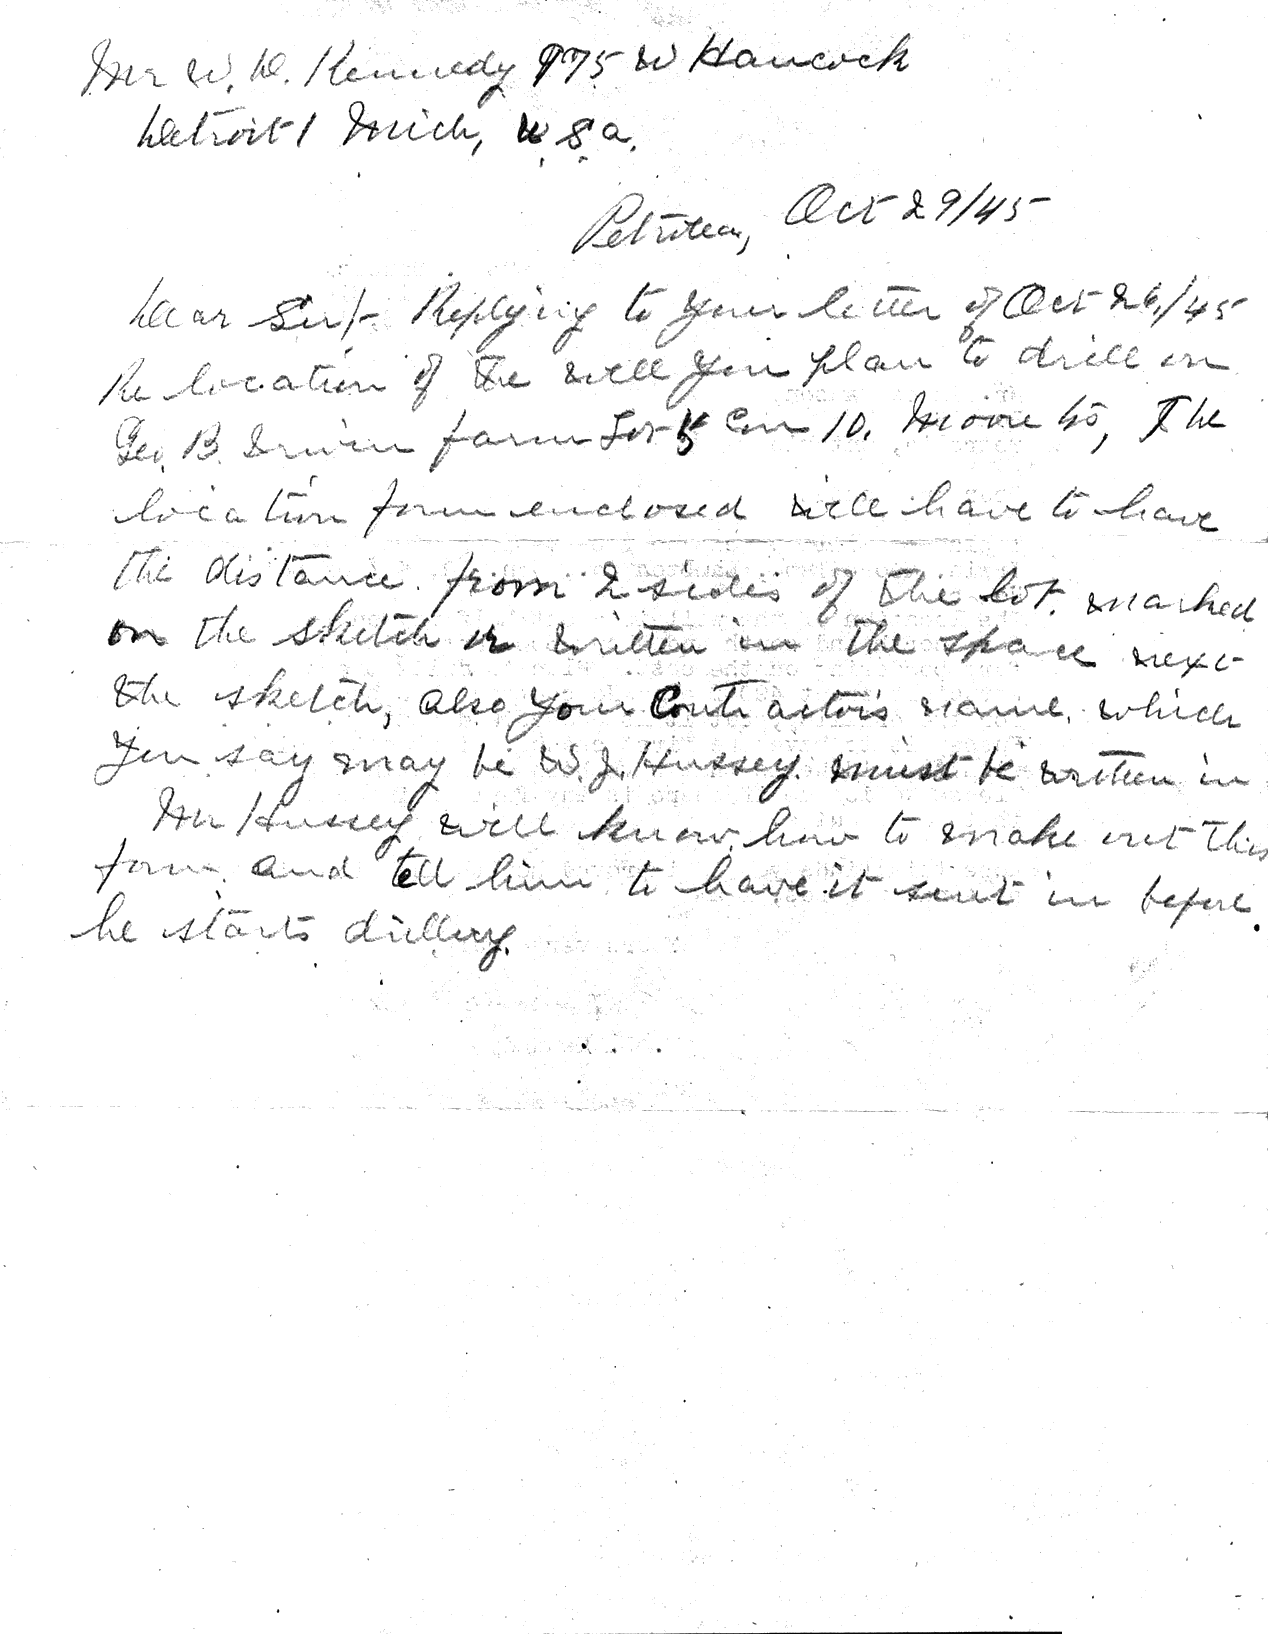 Mr W. D. Kennedy 975 W Hancock
Detroit 1 Mich, U.S.a.
Petrolea, Oct 29/45
Dear Sir/- Replying to your letter of Oct 26/45
Re location of the well you plan to drill on
Geo. B. farm Lot 5 Con 10. Moore, The
location form enclosed will have to have
the distance from 2 sides of the lot. marked
on the sketch or written in the space next
the sketch, also your Contractor's name. which
you say may be W.J. Hussey. must be written in
Mr Hussey will know how to make out this
form. and tell him to have it sent in before
he starts drilling.